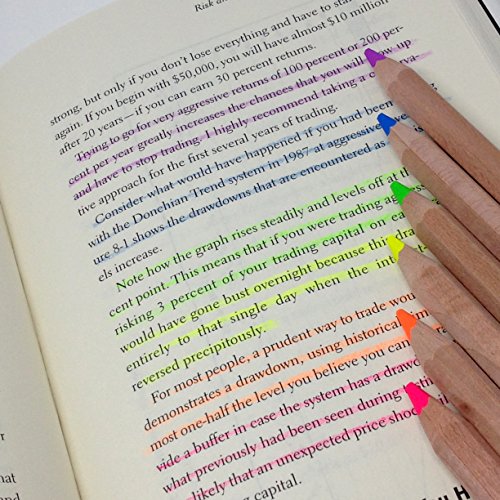 Risk an
strong, but only if you don't lose everything and have to star
again. If you begin with $50,000, you will have almost $10 million
after 20 years—if you can earn 30 percent returns.
Trying to go for very aggressive returns of 100 percent or 200 per-
cent per year greatly increases the chances that you will blow up
and have to stop trading. I highly recommend taking a
tive approach for the first several years of trading.
Consider what would have happened if you had been
with the Donchian Trend system in 1987 at aggressive
ure 8-1 shows the drawdowns that are encountered as
els increase.
Note how the graph rises steadily and levels off at th
cent point. This means that if you were trading
risking 3 percent of your trading capital on ea
would have gone bust overnight because
entirely to that single day when the
reversed precipitously.
For most people, a prudent way to trade
demonstrates a drawdown, using historical
most one-half the level you believe you can
vide a buffer in case the system has a
what previously had been seen during
likely that an unexpected price
ing capital.
r
nat